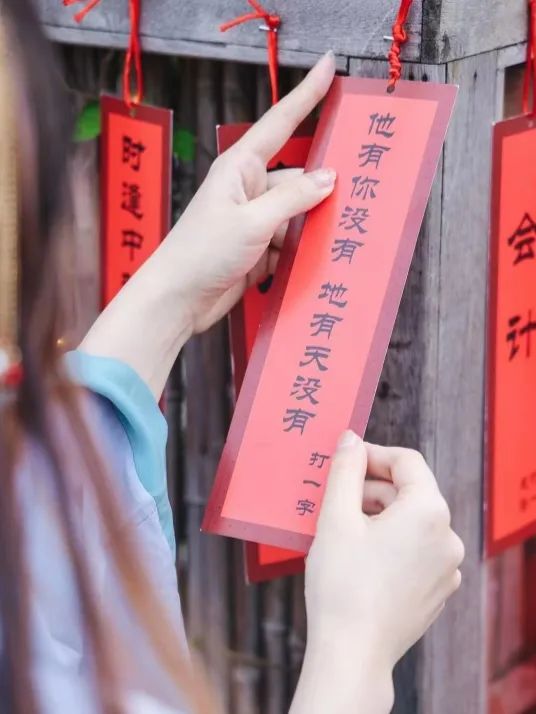 他有你没有 地有天没有
打一字
时逢中
会计